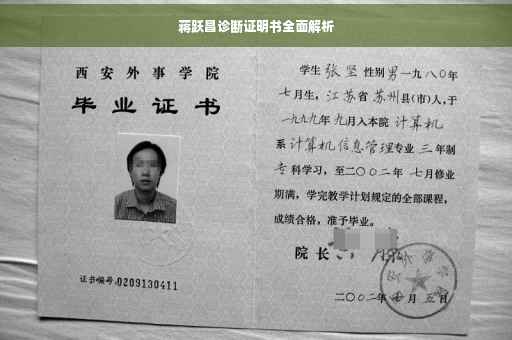 蒋跃昌诊断证明书全面解析
西安外事学院
毕业证书
证书编号:0209130411
学生 张坚 性别 男 一九八〇年
七月生，江苏省 苏州县(市)人，于
一九九九年 九月入本院 计算机
系 计算机信息管理专业 三 年制
专 科学习，至二〇〇二年 七月修业
期满，学完教学计划规定的全部课程，
成绩合格，准予毕业。
院长
二〇〇二年 月 五日